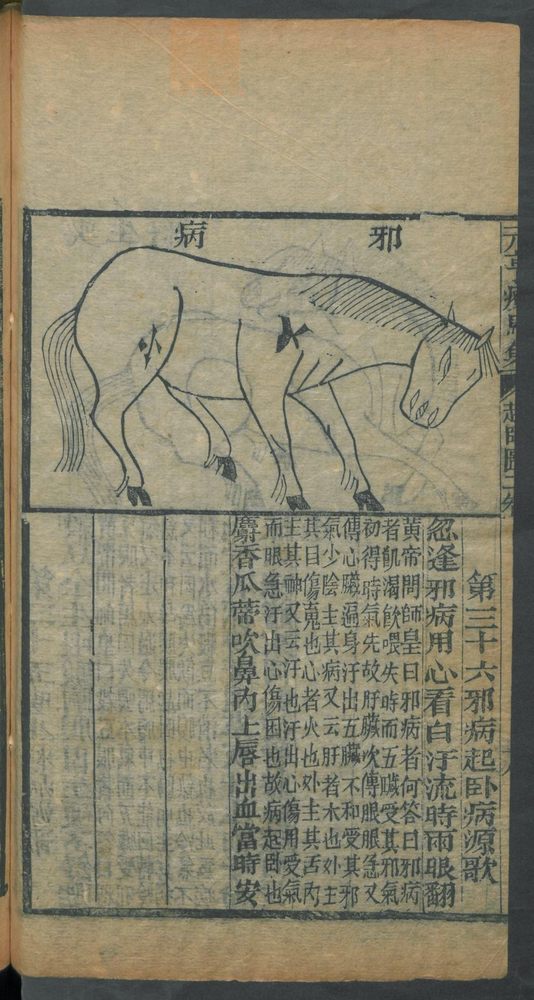 邪病
元亨療馬集 起臥圖二卷
第三十六邪病起卧病源歌
忽逢邪病用心看白汗流時兩眼翻
黃帝問師皇曰邪病者何答曰邪病
者飢渴飲喂失時而五臟受其邪氣
初得時氣先故肝臟次傳眼眼急又
傳心臟遍身汗出五臟不和受其邪
氣少陰主其病又云肝者木也外主
其目傷䰟也心者火也外主其舌內
主其神又云汗也汗出心傷用愛氣
而眼急汗出心傷因也故病起臥也
麝香瓜蒂吹鼻內上唇出血當時安